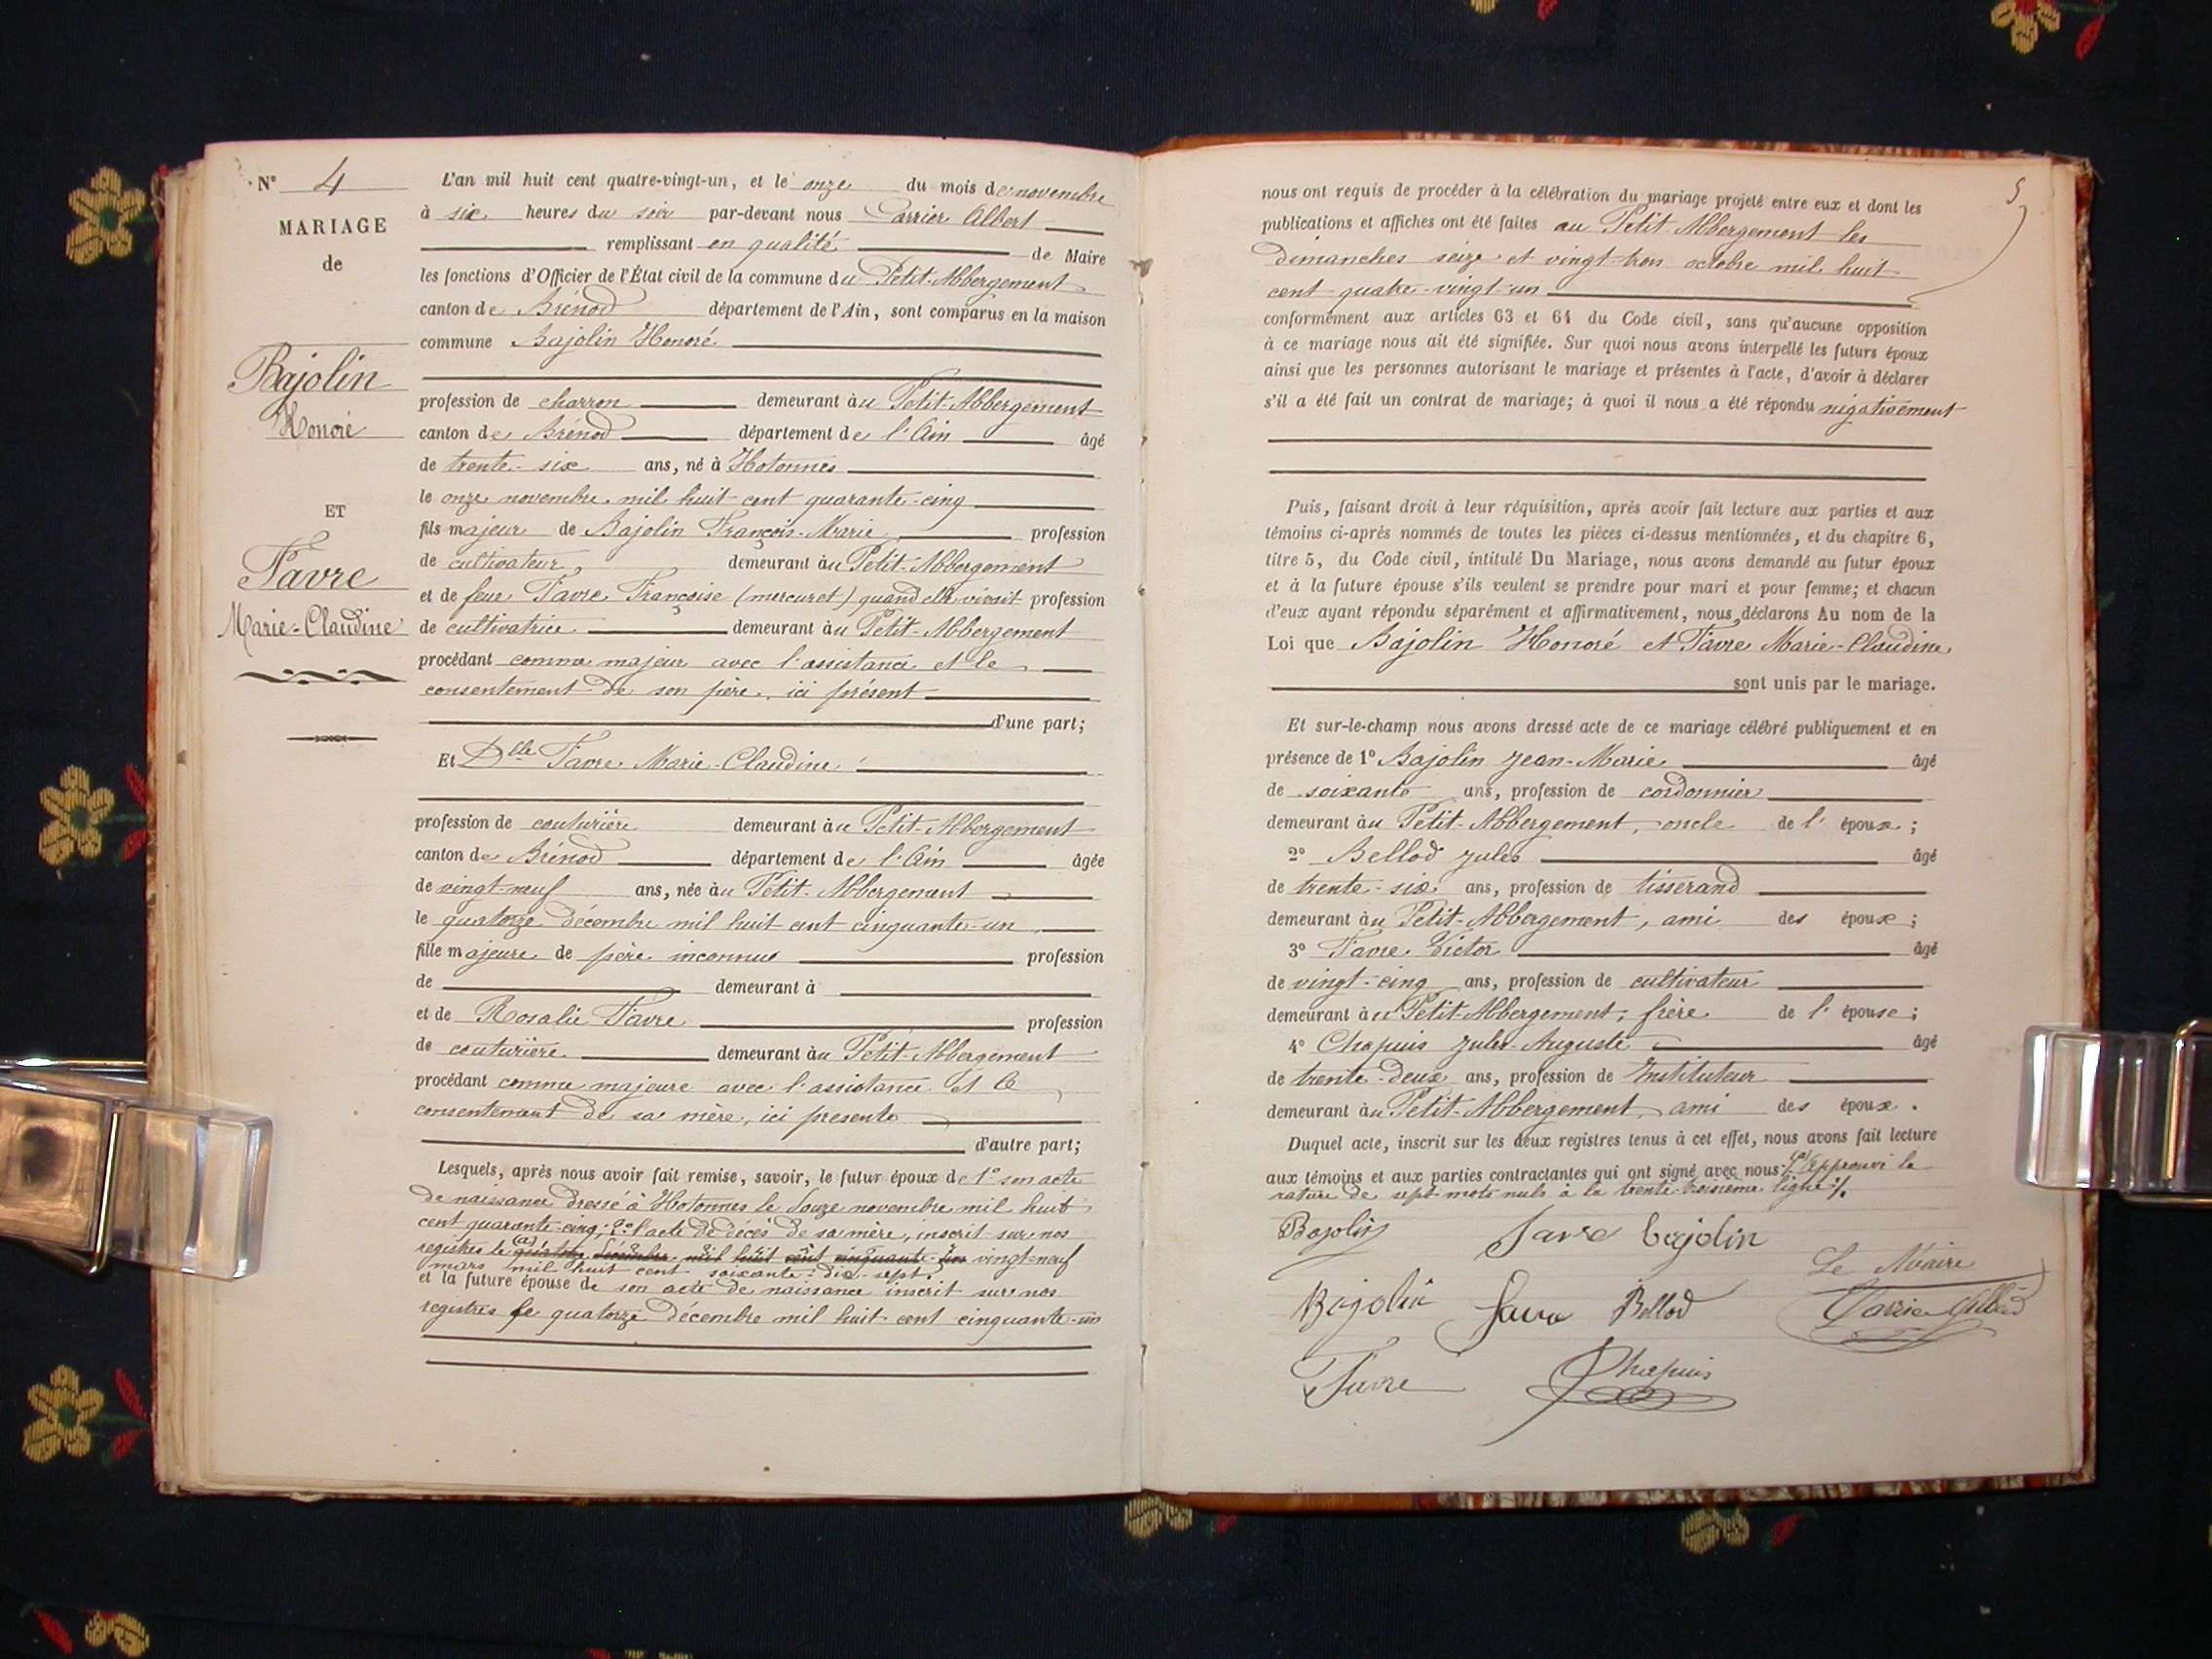 N° 4
MARIAGE
de
Bajolin
Honoré
ET
Favre
Marie-Claudine
L'an mil huit cent quatre-vingt-un, et le onze du mois de novembre
à six heures du soir par-devant nous Carrier Albert
remplissant en qualité de Maire
les fonctions d'Officier de l'État civil de la commune du Petit-Abbergement
canton de Brénod département de l'Ain, sont comparus en la maison
commune Bajolin Honoré
profession de charron demeurant au Petit-Abbergement
canton de Brénod département de l'Ain âgé
de trente-six ans, né à Hotonnes
le onze novembre mil huit cent quarante-cinq
fils majeur de Bajolin François-Marie profession
de cultivateur, demeurant au Petit-Abbergement
et de feue Favre Françoise (mercuret) quand elle vivait profession
de cultivatrice demeurant au Petit-Abbergement
procédant comme majeur avec l'assistance et le
consentement de son père, ici présent
d'une part;
Et Dlle Favre Marie-Claudine
profession de couturière demeurant au Petit-Abbergement
canton de Brénod département de l'Ain âgée
de vingt-neuf ans, née au Petit-Abbergement
le quatorze décembre mil huit cent cinquante-un
fille majeure de père inconnu profession
de demeurant à
et de Rosalie Favre profession
de couturière demeurant au Petit-Abbergement
procédant comme majeure avec l'assistance et le
consentement de sa mère, ici présente
d'autre part;
Lesquels, après nous avoir fait remise, savoir, le futur époux de 1° son acte
de naissance dressé à Hotonnes le douze novembre mil huit
cent quarante-cinq; 2° l'acte de décès de sa mère, inscrit sur nos
registres le (a) quatorze décembre mil huit cent cinquante-un vingt-neuf
mars mil huit cent soixante-dix-sept.
et la future épouse de son acte de naissance inscrit sur nos
registres le quatorze décembre mil huit cent cinquante-un
5
nous ont requis de procéder à la célébration du mariage projeté entre eux et dont les
publications et affiches ont été faites au Petit-Abbergement les
dimanches seize et vingt-trois octobre mil huit
cent quatre-vingt-un
conformément aux articles 63 et 64 du Code civil, sans qu'aucune opposition
à ce mariage nous ait été signifiée. Sur quoi nous avons interpellé les futurs époux
ainsi que les personnes autorisant le mariage et présentes à l'acte, d'avoir à déclarer
s'il a été fait un contrat de mariage; à quoi il nous a été répondu négativement
Puis, faisant droit à leur réquisition, après avoir fait lecture aux parties et aux
témoins ci-après nommés de toutes les pièces ci-dessus mentionnées, et du chapitre 6,
titre 5, du Code civil, intitulé Du Mariage, nous avons demandé au futur époux
et à la future épouse s'ils veulent se prendre pour mari et pour femme; et chacun
d'eux ayant répondu séparément et affirmativement, nous déclarons Au nom de la
Loi que Bajolin Honoré et Favre Marie-Claudine
sont unis par le mariage.
Et sur-le-champ nous avons dressé acte de ce mariage célébré publiquement et en
présence de 1° Bajolin Jean-Marie âgé
de soixante ans, profession de cordonnier
demeurant au Petit-Abbergement, oncle de l'époux;
2° Bellod Jules âgé
de trente-six ans, profession de tisserand
demeurant au Petit-Abbergement, ami des époux;
3° Favre Victor âgé
de vingt-cinq ans, profession de cultivateur
demeurant au Petit-Abbergement, frère de l'épouse;
4° Chapuis Jules-Auguste âgé
de trente-deux ans, profession de Instituteur
demeurant au Petit-Abbergement, ami des époux.
Duquel acte, inscrit sur les deux registres tenus à cet effet, nous avons fait lecture
aux témoins et aux parties contractantes qui ont signé avec nous ./. (a) Approuvé la
rature de sept mots nuls à la trente-troisième ligne ./.
Bajolin Favre Bajolin
Le Maire
Bajolin Favre Bellod Carrier Albert
Favre Chapuis